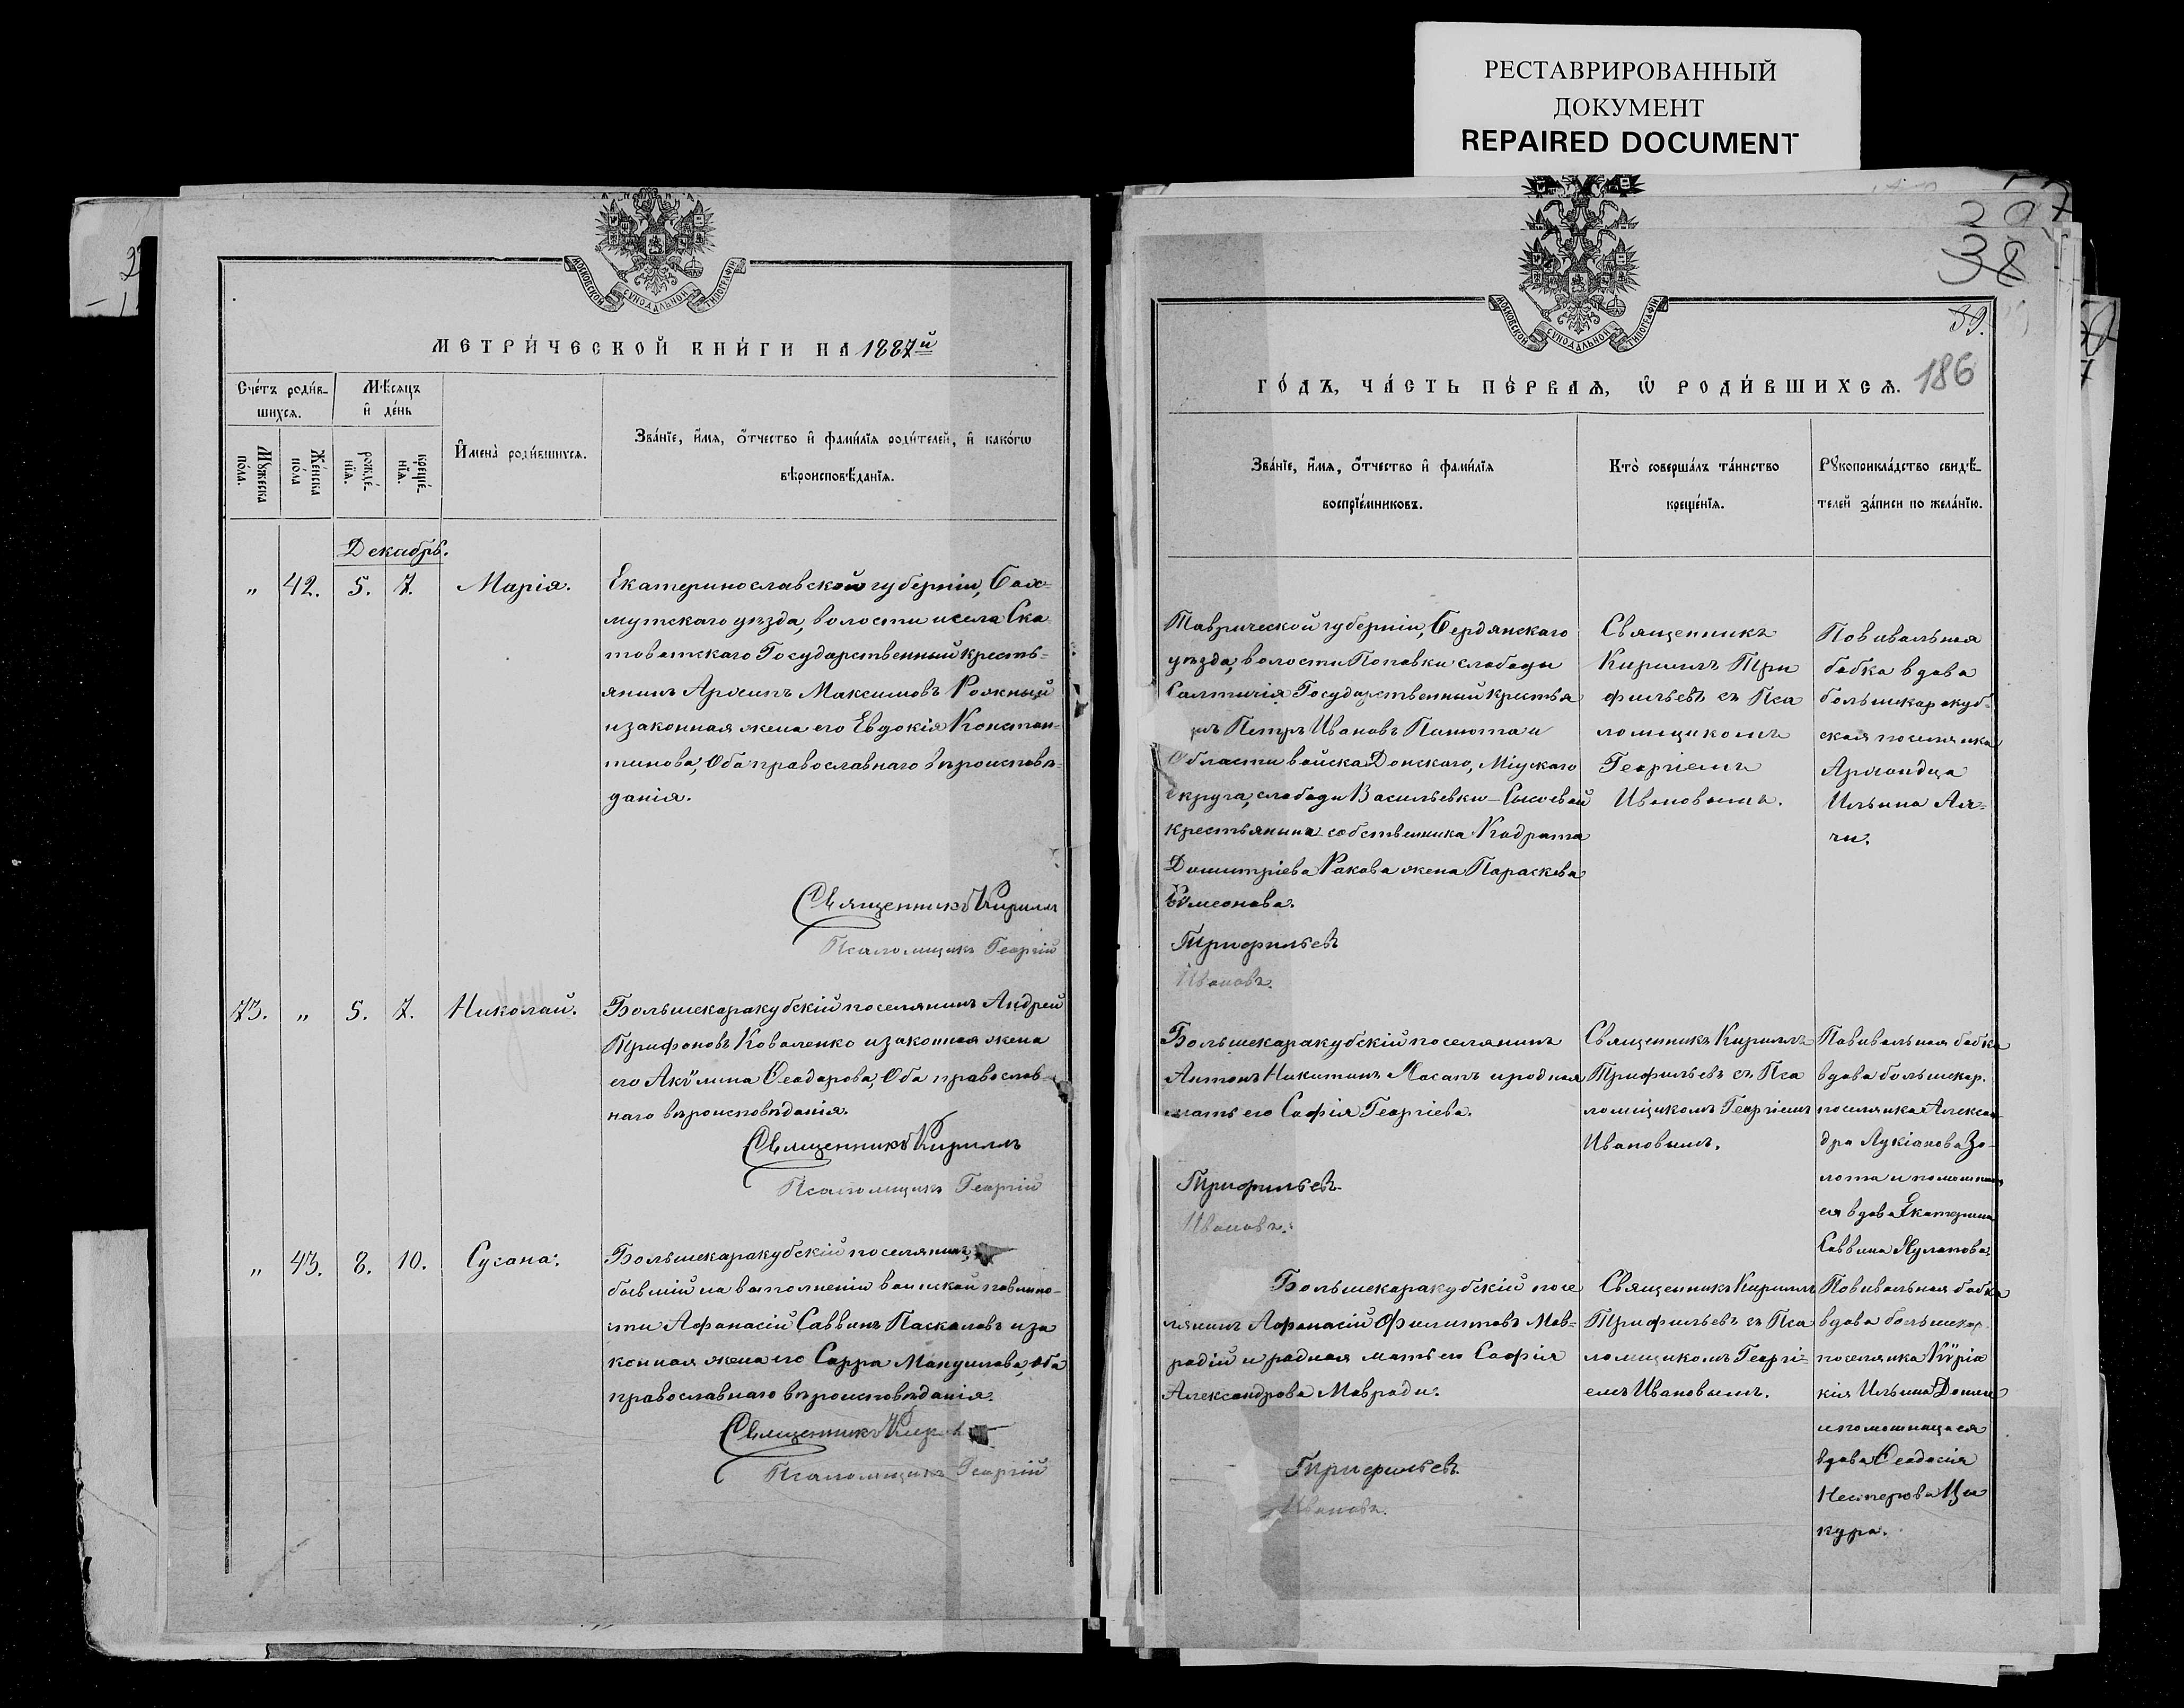 РЕСТАВРИРОВАННЫЙ
ДОКУМЕНТ
REPAIRED DOCUMENT
МОСКОВСКОЙ СѴНОДАЛЬНОЙ ТИПОГРАФІИ
МЕТРИ́ЧЕСКОЙ КНИ́ГИ НА 1887й
Сче́тъ роди́в-
шихсѧ.
Мѣ́сѧцъ
и҆ де́нь
Мꙋ́жеска
по́ла.
Же́нска
по́ла
рожде́-
нїѧ.
креще́-
нїѧ.
И҆мена̀ роди́вшихсѧ.
Зва́нїе, и҆́мѧ, ѻ҆́тчество и҆ фами́лїѧ роди́телей, и҆ како́гѡ
вѣроисповѣ́данїѧ.
Декабрь.
" 42. 5. 7. Марія.
Екатеринославской губерніи, Бах-
мутскаго уѣзда, волости и села Ска
товатскаго Государственный кресть-
янинъ Архипъ Максимовъ
и законная жена его Евдокія Констан-
тинова, Оба православнаго вѣроисповѣ-
данія.
Священникъ Кириллъ
Псаломщикъ Георгій
73. " 5. 7. Николай.
Большекаракубскій поселянинъ Андрей
Трифоновъ Коваленко и законная жена
его Акѵлина Ѳеодорова, Оба православ-
наго вѣроисповѣданія.
Священникъ Кириллъ
Псаломщикъ Георгій
" 43. 8. 10. Сусана.
Большекаракубскій поселянинъ,
бывшій на выполненіи воинской повинно-
сти Афанасій Саввинъ Паскаловъ и за
конная жена его Сарра Мануилова, оба
православнаго вѣроисповѣданія.
Священникъ
Псаломщикъ Георгій
207
38
39.
186
МОСКОВСКОЙ СѴНОДАЛЬНОЙ ТИПОГРАФІИ
ГО́ДЪ, ЧА́СТЬ ПЕ́РВАѦ, Ѡ҆ РОДИ́ВШИХСѦ.
Зва́нїе, и҆́мѧ, ѻ҆́тчество и҆ фами́лїѧ
воспрїе́мниковъ.
Кто̀ соверша́лъ та́инство
креще́нїѧ.
Рꙋкоприкла́дство свидѣ́-
телей за́писи по жела́нїю.
Таврической губерніи, Бердянскаго
уѣзда, волости Поповки слободы
Салтичія Государственный крестья
нъ Петръ Ивановъ Панюта и
Области войска Донскаго, Міускаго
округа, слободы Васильевки-Сысоевой
крестьянина собственника Кодрата
Димитріева Ракова жена Параскева
Сѵмеонова.
Трифильевъ
Ивановъ.
Священникъ
Кириллъ Три
фильевъ съ Пса
ломщикомъ
Георгіемъ
Ивановымъ.
Повивальная
бабка вдова
большекаракуб-
ская поселянка
Ильина
Большекаракубскій поселянинъ
Антонъ Никитинъ Хасапъ и родная
мать его Софія Георгіева.
Трифильевъ
Ивановъ.
Священникъ Кириллъ
Трифильевъ съ Пса
ломщикомъ Георгіемъ
Ивановымъ.
Повивальная бабка
вдова большекар.
поселянка Алексан-
дра Лукіанова Зо-
лота и помошница
ея вдова Екатерина
Саввина
Большекаракубскій посе
лянинъ Афанасій Филиповъ Мав-
родій и родная мать его Софія
Александрова Мавроди.
Трифильевъ
Ивановъ.
Священникъ Кириллъ
Трифильевъ съ Пса
ломщикомъ Георгі-
емъ Ивановымъ.
Повивальная бабка
вдова большекар.
поселянка Кѵріа
кія Ильина
и помошница ея
вдова Ѳеодосія
Нестерова